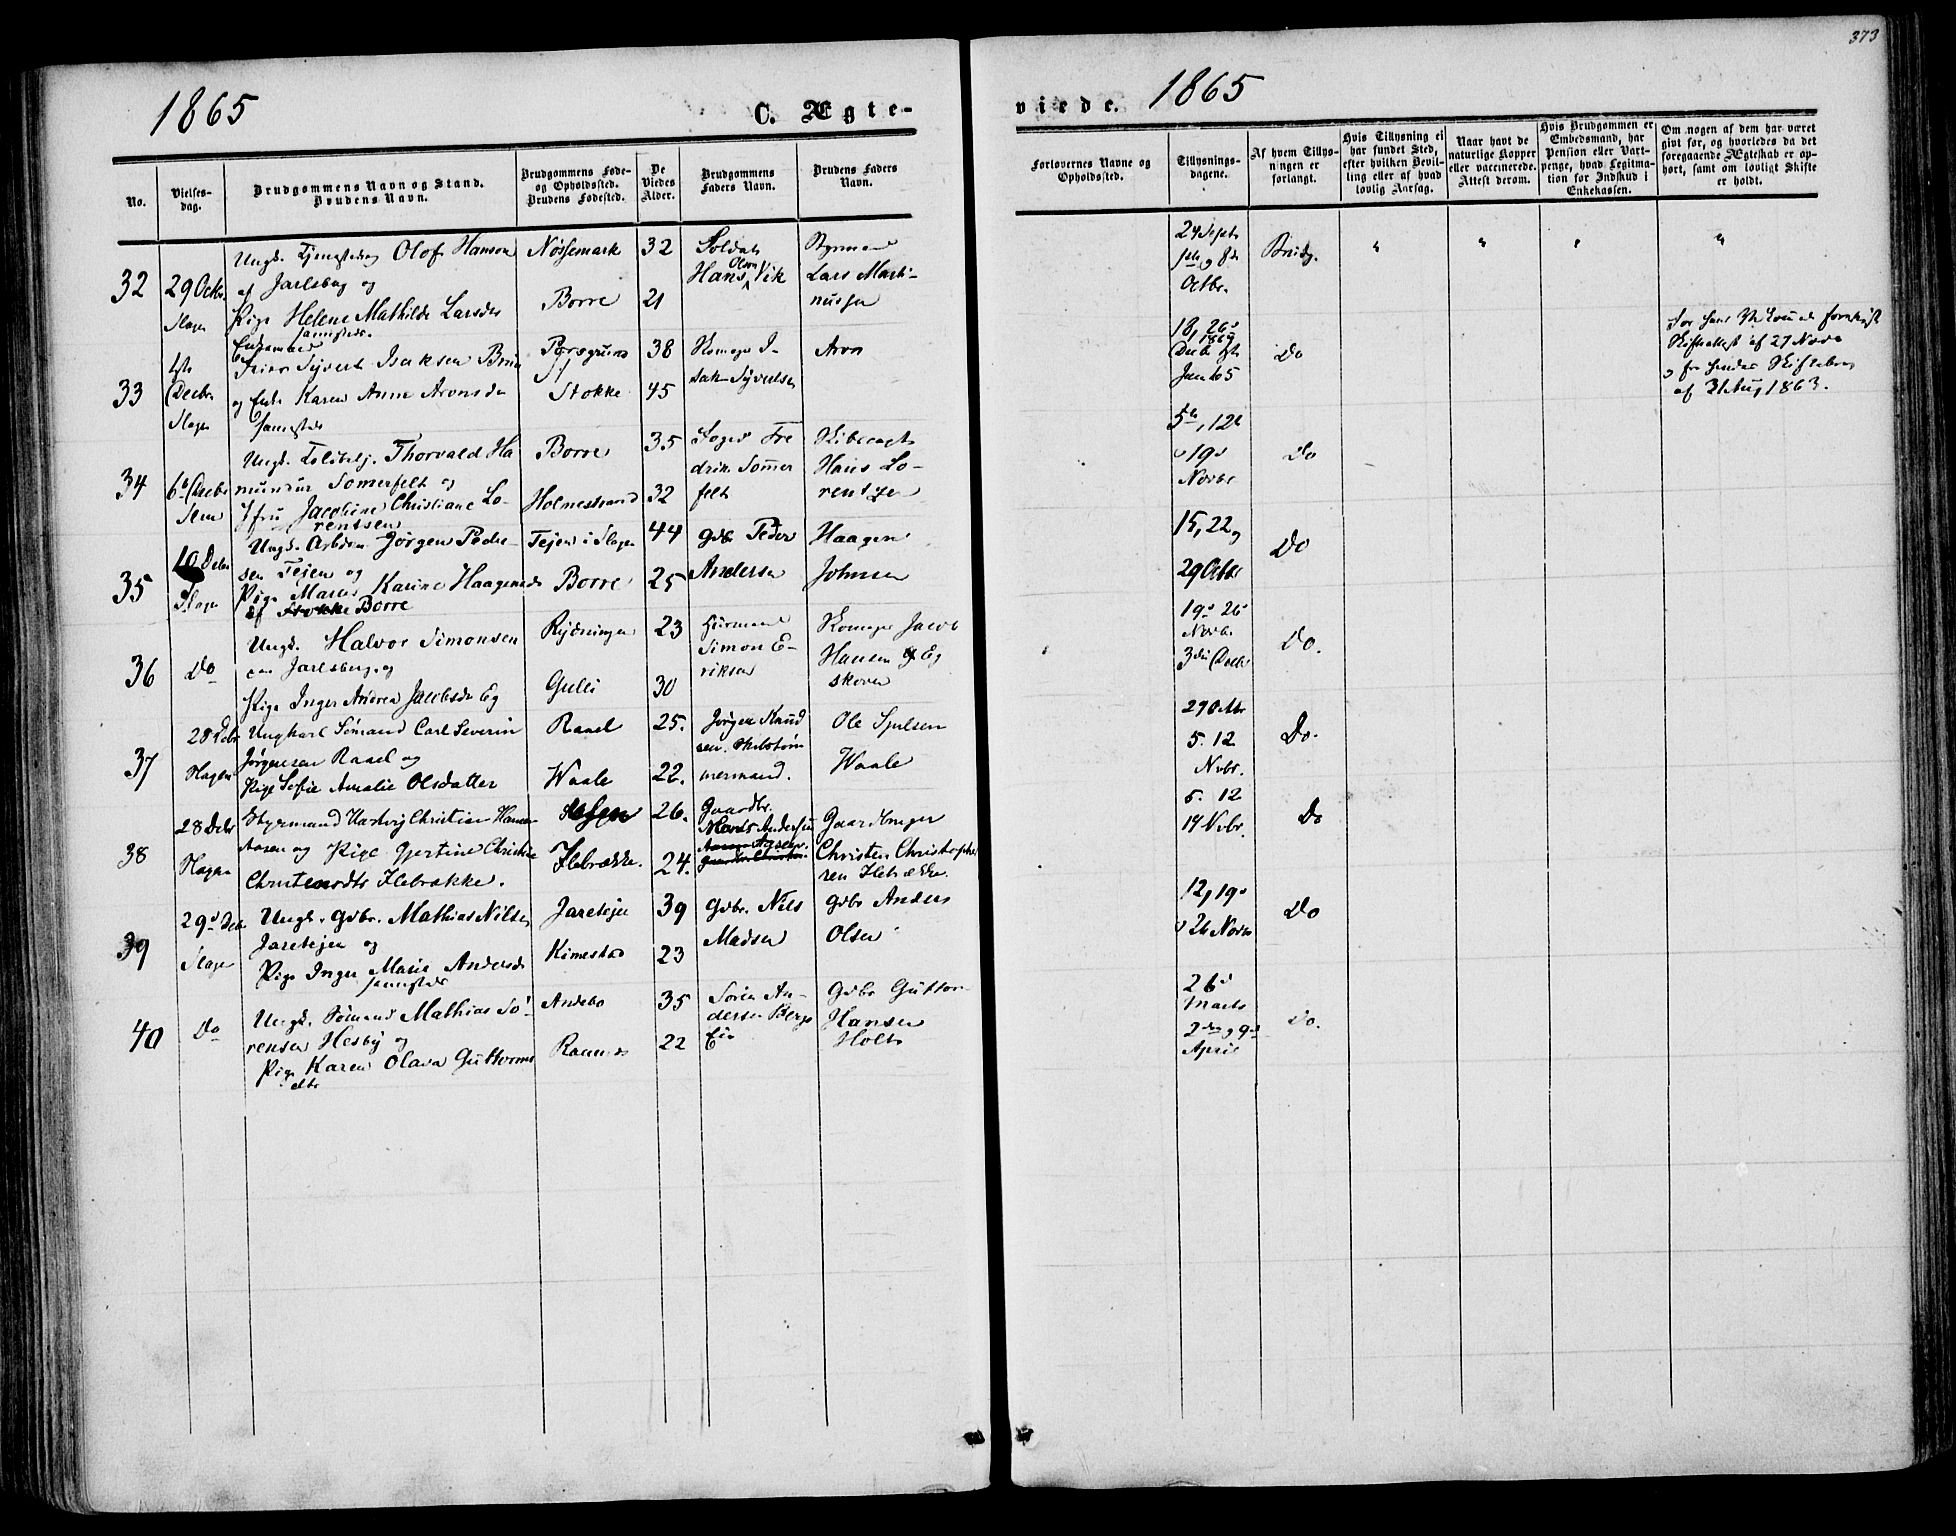 373
1865
C. Ægte-
viede.
1865
No.
Vielses-
dag.
Brudgommens Navn og Stand.
Brudens Navn.
Brudgommens Føde-
og Opholdssted.
Brudens Fødested.
De
Viedes
Alder.
Brudgommens
Faders Navn.
Brudens Faders
Navn.
Forlovernes Navne og
Opholdssted.
Tillysnings-
dagene.
Af hvem Tillys-
ningen er
forlangt.
Hvis Tillysning ei
har fundet Sted,
efter hvilken Bevil-
ling eller af hvad
lovlig Aarsag.
Naar havt de
naturlige Kopper
eller vaccinerede.
Attest derom.
Hvis Brudgommen er
Embedsmand, har
Pension eller Vart-
penge, hvad Legitima-
tion for Indskud i
Enkekassen.
Om nogen af dem har været
givt før, og hvorledes da det
foregaaende Ægteskab er op-
hørt, samt om lovligt Skifte
er holdt.
32
29 Octbr.
Slagen
Ungk. Olof Hanson
af Jarlsberg og
Pige Helene Mathilde Larsdr
Nössemark
Borre
32
21
Soldat
Olson
Hans Vik
Lars Marti-
nussen
24 Septr
1ste og 8de
Octbr.
Brudg.
"
"
"
"
33
1ste
Decbr
Slagen
Enkemand
Sivert Isaksen
og Enke Karen Anne Aronsdr
sammesteds
Porsgrund
Stokke
38
45
I-
sak Syvertsen
Aron
18, 26
Decbr 1864
Jan 65
Do
Skifteattest af 27 Novbr
af 31 Aug 1863.
34
6te Decbr
Slem
Ungk. Thorvald Ha
mundur Somerfelt og
Jfru Jacobine Christiane Lo-
rentsen
Borre
Holmestrand
35
32
Fre
drik Somer
felt
Hans Lo-
rentzen
5te, 12te
19de
Novbr
Do
35
10 Decbr
Slagen
Ungk. Arbdm. Jørgen Peder-
sen Tejen og
Pige Maren Karine Haagensdr
af Stokke Borre
Tejen i Slagen
Borre
44
25
Gdbr Peder
Andersen
Haagen
Johnsen
15, 22 og
29 Octbr
Do
36
Do
Ungk. Halvor Simonsen
Jarlsberg, og
Pige Inger Andrea Jacobsdr Eg
Rydningen
Gulli
23
30
Simon E-
riksen
Jacob
Hansen Eg
skoven
19de 26de
Novbr.
3die Decbr
Do.
37
28 Decbr
Slagen
Ungkarl Sømand Carl Severin
Jørgensen Raael og
Pige Sofie Amalie Olsdatter
Raael
Waale
25.
22.
Jørgen Knud
sen. Skibstøm
mermand.
Ole Sjulsen
Waale
29 Octbr
5. 12
Novbr.
Do.
38
28 Decbr
Slagen
Styrmand Hartvig Christian Hansen
Aasen og Pige Gjertine Christine
Christensdtr Ilebrække.
Ilebrække.
26.
24.
Gaardbr.
Andersen
Gaardbruger
Christen Christophe
sen Ilebrække.
5. 12
19 Nvbr.
Do
39
29de Decbr
Slagen
Ungk. Gdbr. Mathias Nilsen
Jaretejen og
Pige Inger Marie Andersdr
sammesteds
Jaretejen
Kimestad
39
23
Gdbr. Nils
Madsen
Gdbr Anders
Olsen
12, 19de
26 Novbr
Do
40
Do
Ungk. Sømand Mathias Sö-
rensen Hesby og
Pige Karen Olava Guttorms
dtr
Andebo
Ramnes
35
22
Sören An-
dersen Berge
Eie
Gdbr Guttor
Hansen
Holt
26de
Marts
2den og 9de
April
Do.